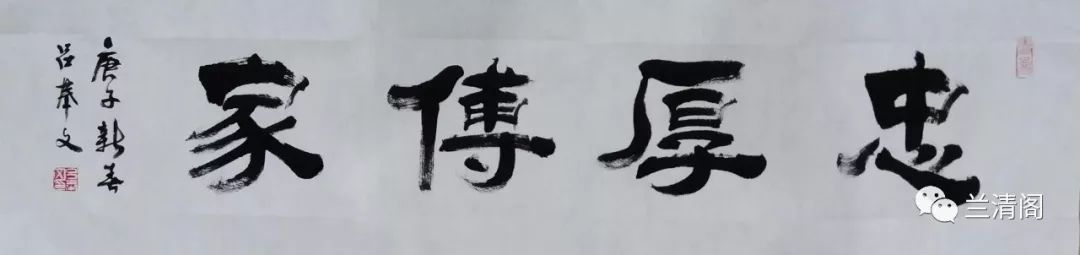 忠厚傳家
庚子新春
吕奉文
兰清阁